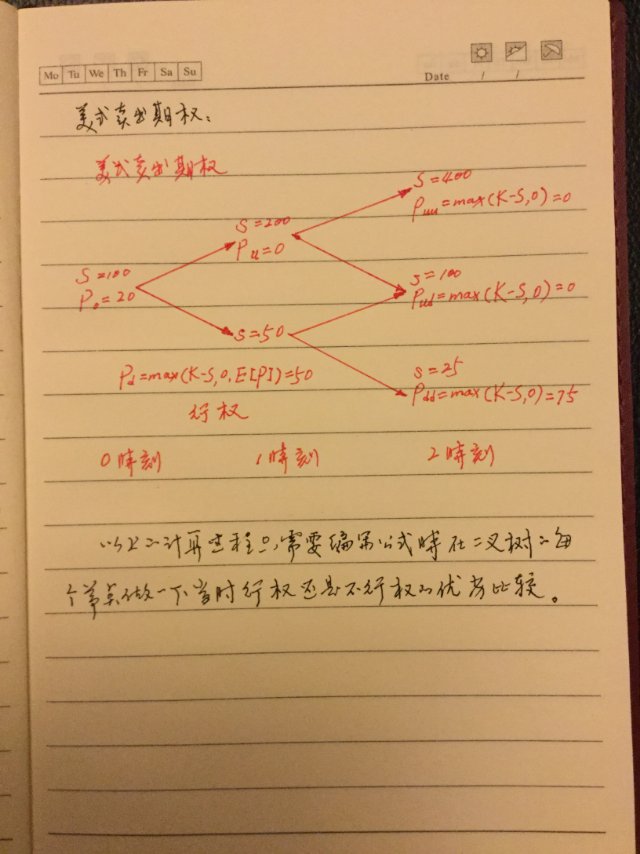 Mo Tu We Th Fr Sa Su
Date / /
美式卖出期权：
美式卖出期权
S=400
Puu=max(K-S,0)=0
S=200
Pu=0
S=100
P0=20
S=100
Pud=max(K-S,0)=0
S=50
Pd=max(K-S,0,E[P])=50
行权
S=25
Pdd=max(K-S,0)=75
0時刻 1時刻 2時刻
以上计算过程只需要编写公式時在二叉树的每
个节点做一下当时行权还是不行权的优劣比较。